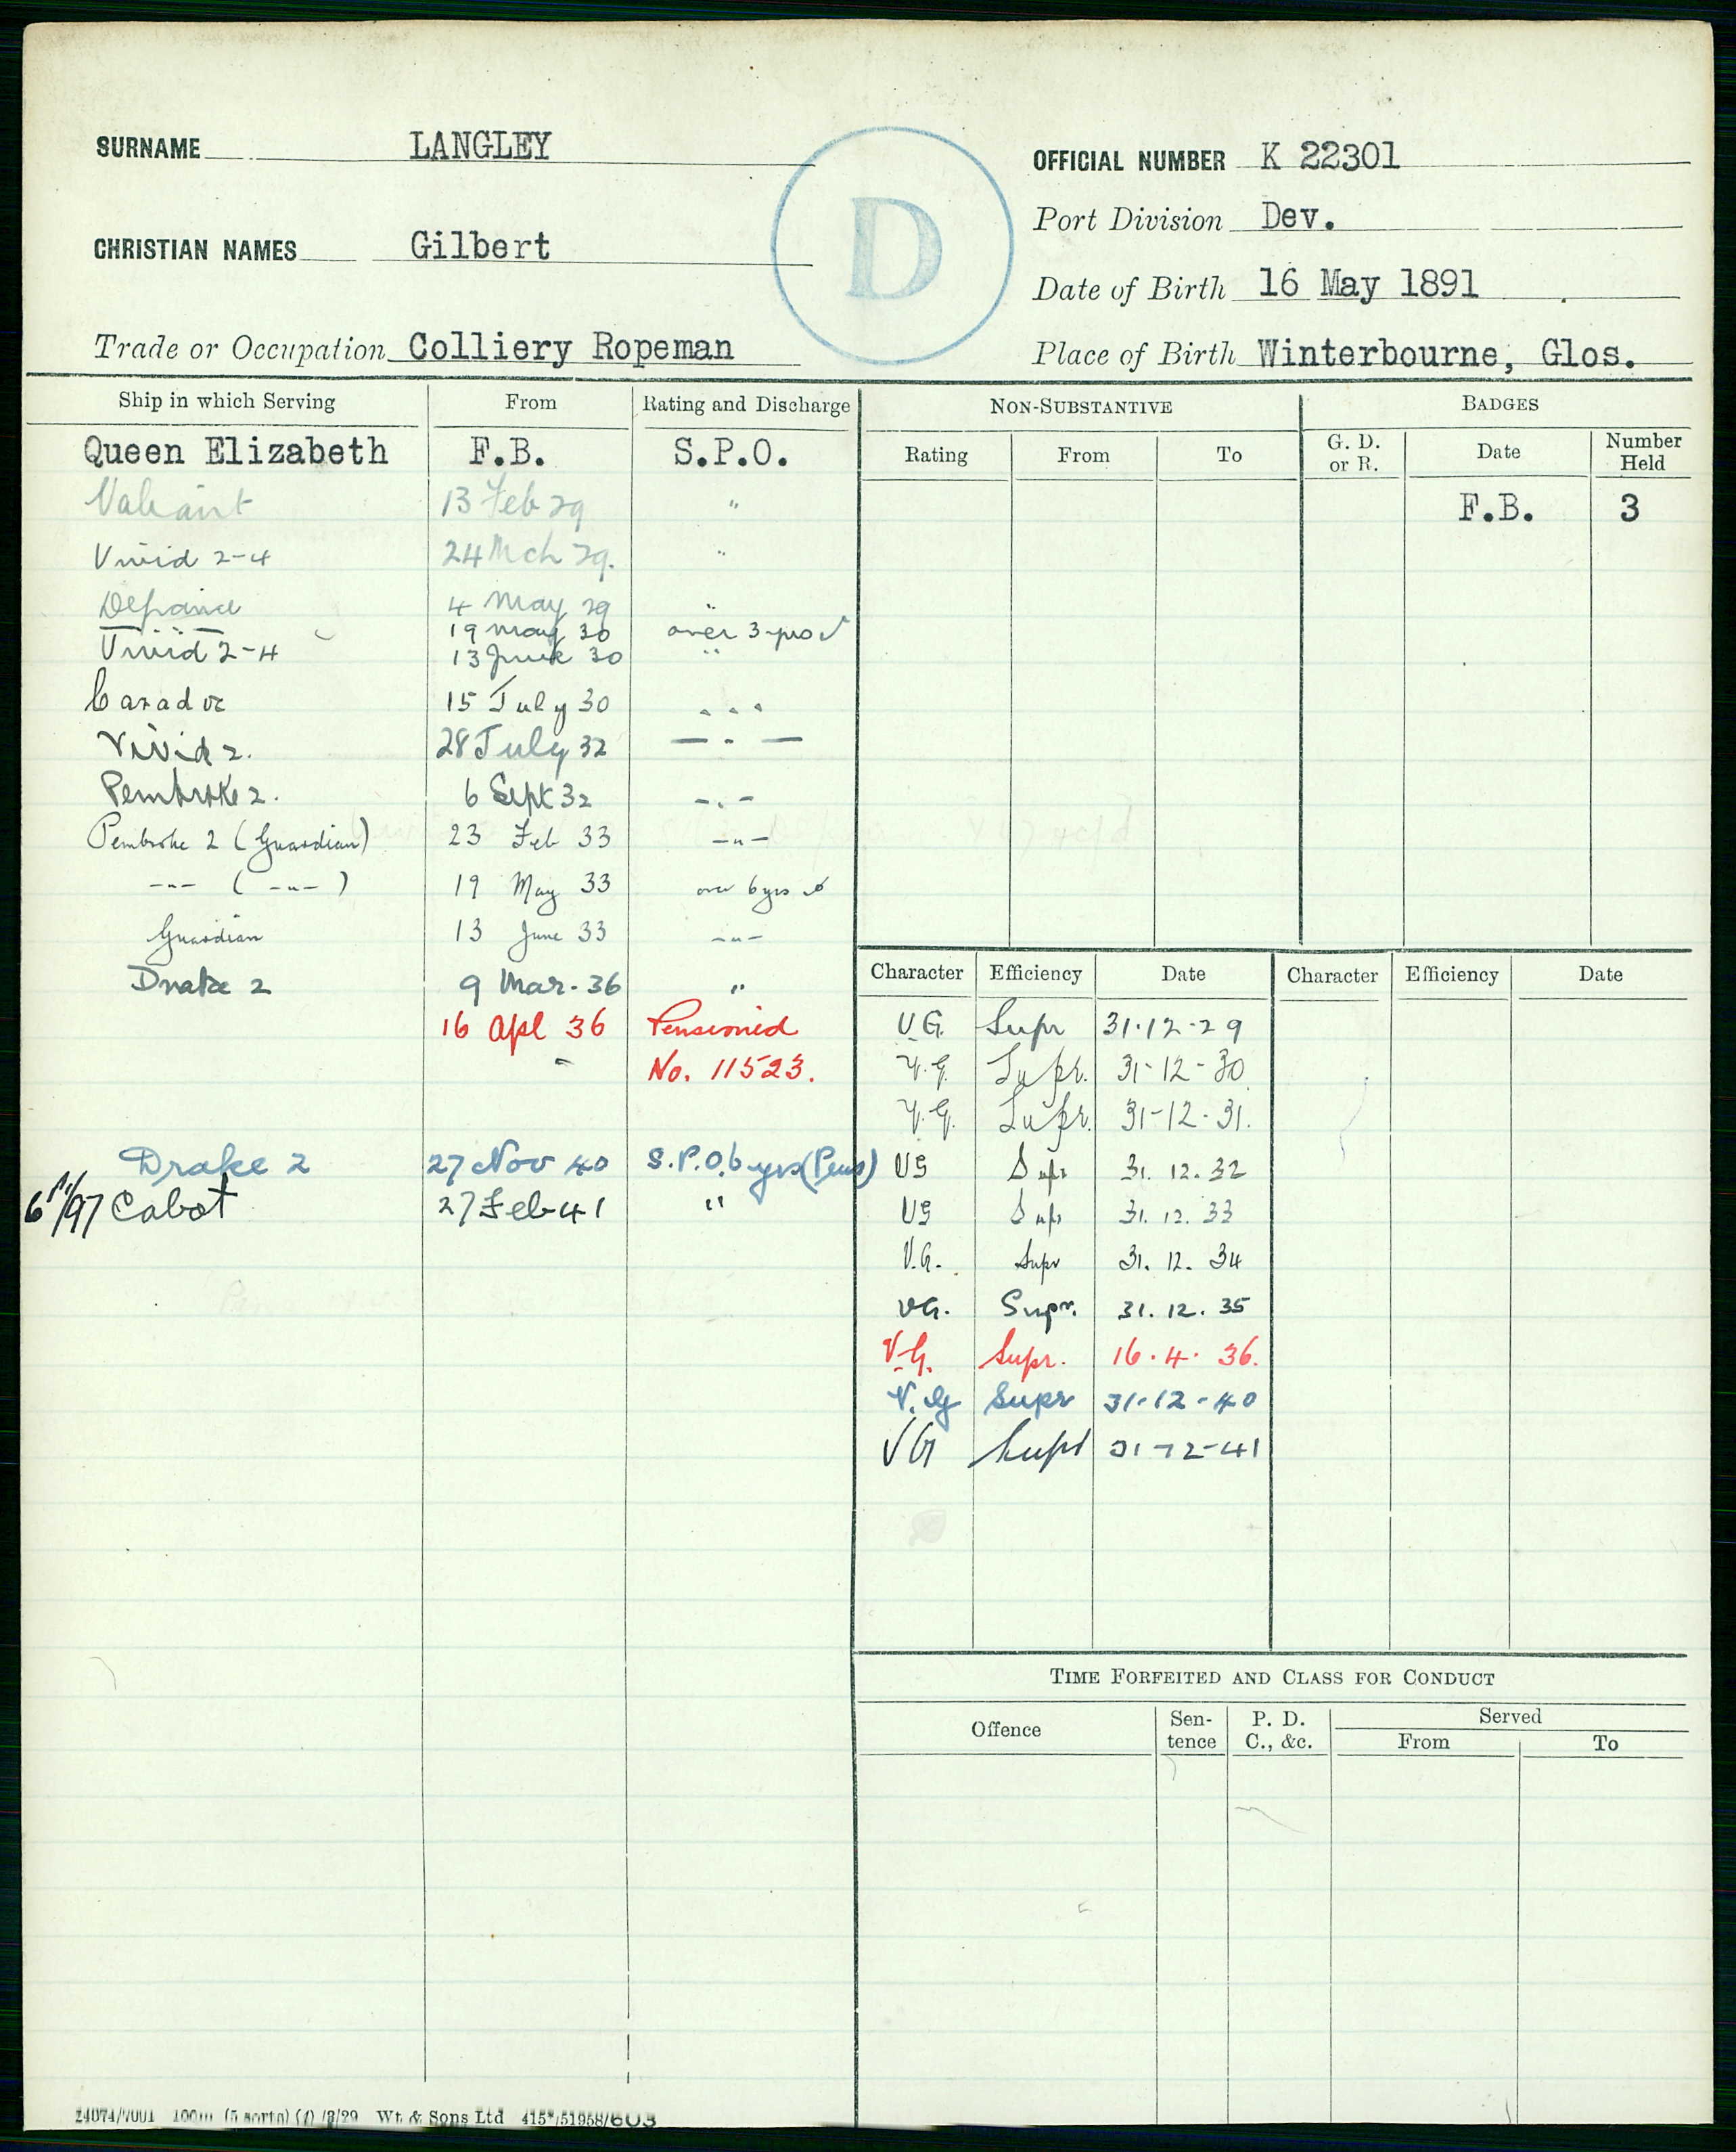 SURNAME LANGLEY
CHRISTIAN NAMES Gilbert
Trade or Occupation Colliery Ropeman
D
OFFICIAL NUMBER K 22301
Port Division Dev.
Date of Birth 16 May 1891
Place of Birth Winterbourne, Glos.
Ship in which Serving From Rating and Discharge
Queen Elizabeth F.B. S.P.O.
Valiant 13 Feb 29 "
Vivid 2-4 24 Mch 29. "
Defiance 4 May 29 "
" 19 May 30 over 3
Vivid 2-4 13 June 30 "
Caradoc 15 July 30 "
Vivid 2. 28 July 32 — " —
Pembroke 2. 6 Sept 32 - " -
Pembroke 2 (Guardian) 23 Feb 33 -"-
-"- ( -"- ) 19 May 33 over 6 yrs
Guardian 13 June 33 -"-
Drake 2 9 Mar. 36 "
16 Apl 36 Pensioned
No. 11523.
Drake 2 27 Nov 40 S.P.O. 6 yrs (Pens)
Cabot 27 Feb 41 "
NON-SUBSTANTIVE
Rating From To
BADGES
G. D. or R. Date Number Held
F.B. 3
Character Efficiency Date Character Efficiency Date
V.G. Supr 31.12.29
V.G. Supr. 31-12-30
V.G. Supr. 31-12-31.
VG Supr 31.12.32
VG Supr 31.12.33
V.G. Supr 31.12.34
VG. Supr. 31.12.35
V.G. Supr. 16.4.36.
V.G Supr 31-12-40
VG Supr 31-12-41
TIME FORFEITED AND CLASS FOR CONDUCT
Offence Sen-tence P. D. C., &c. Served
From To
Wt & Sons Ltd